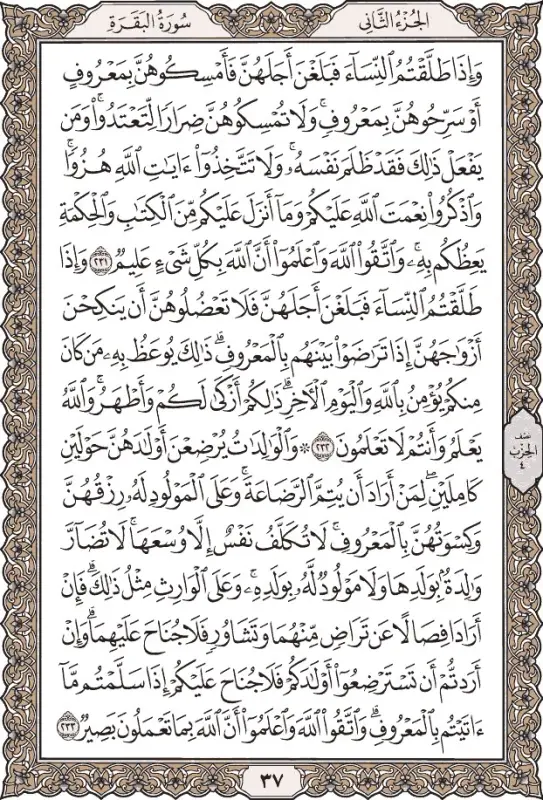 سُورَةُ البَقَرَةِ
الجُزءُ الثَّانِي
وَإِذَا طَلَّقۡتُمُ ٱلنِّسَآءَ فَبَلَغۡنَ أَجَلَهُنَّ فَأَمۡسِكُوهُنَّ بِمَعۡرُوفٍ
أَوۡ سَرِّحُوهُنَّ بِمَعۡرُوفٖۚ وَلَا تُمۡسِكُوهُنَّ ضِرَارٗا لِّتَعۡتَدُواْۚ وَمَن
يَفۡعَلۡ ذَٰلِكَ فَقَدۡ ظَلَمَ نَفۡسَهُۥۚ وَلَا تَتَّخِذُوٓاْ ءَايَٰتِ ٱللَّهِ هُزُوٗاۚ
وَٱذۡكُرُواْ نِعۡمَتَ ٱللَّهِ عَلَيۡكُمۡ وَمَآ أَنزَلَ عَلَيۡكُم مِّنَ ٱلۡكِتَٰبِ وَٱلۡحِكۡمَةِ
يَعِظُكُم بِهِۦۚ وَٱتَّقُواْ ٱللَّهَ وَٱعۡلَمُوٓاْ أَنَّ ٱللَّهَ بِكُلِّ شَيۡءٍ عَلِيمٞ ٢٣١ وَإِذَا
طَلَّقۡتُمُ ٱلنِّسَآءَ فَبَلَغۡنَ أَجَلَهُنَّ فَلَا تَعۡضُلُوهُنَّ أَن يَنكِحۡنَ
أَزۡوَٰجَهُنَّ إِذَا تَرَٰضَوۡاْ بَيۡنَهُم بِٱلۡمَعۡرُوفِۗ ذَٰلِكَ يُوعَظُ بِهِۦ مَن كَانَ
مِنكُمۡ يُؤۡمِنُ بِٱللَّهِ وَٱلۡيَوۡمِ ٱلۡأٓخِرِۗ ذَٰلِكُمۡ أَزۡكَىٰ لَكُمۡ وَأَطۡهَرُۚ وَٱللَّهُ
يَعۡلَمُ وَأَنتُمۡ لَا تَعۡلَمُونَ ٢٣٢ ۞ وَٱلۡوَٰلِدَٰتُ يُرۡضِعۡنَ أَوۡلَٰدَهُنَّ حَوۡلَيۡنِ
كَامِلَيۡنِۖ لِمَنۡ أَرَادَ أَن يُتِمَّ ٱلرَّضَاعَةَۚ وَعَلَى ٱلۡمَوۡلُودِ لَهُۥ رِزۡقُهُنَّ
وَكِسۡوَتُهُنَّ بِٱلۡمَعۡرُوفِۚ لَا تُكَلَّفُ نَفۡسٌ إِلَّا وُسۡعَهَاۚ لَا تُضَآرَّ
وَٰلِدَةُۢ بِوَلَدِهَا وَلَا مَوۡلُودٞ لَّهُۥ بِوَلَدِهِۦۚ وَعَلَى ٱلۡوَارِثِ مِثۡلُ ذَٰلِكَۗ فَإِنۡ
أَرَادَا فِصَالًا عَن تَرَاضٖ مِّنۡهُمَا وَتَشَاوُرٖ فَلَا جُنَاحَ عَلَيۡهِمَاۗ وَإِنۡ
أَرَدتُّمۡ أَن تَسۡتَرۡضِعُوٓاْ أَوۡلَٰدَكُمۡ فَلَا جُنَاحَ عَلَيۡكُمۡ إِذَا سَلَّمۡتُم مَّآ
ءَاتَيۡتُم بِٱلۡمَعۡرُوفِۗ وَٱتَّقُواْ ٱللَّهَ وَٱعۡلَمُوٓاْ أَنَّ ٱللَّهَ بِمَا تَعۡمَلُونَ بَصِيرٞ ٢٣٣
نصف
الحزب
٤
٣٧